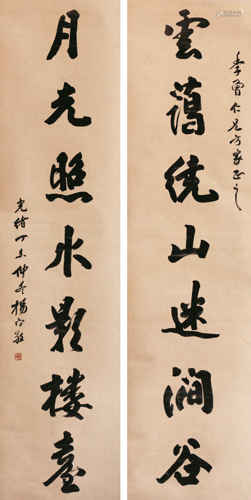 季曾仁兄方家正之
雲蔼繞山迷澗谷
月光照水影樓臺
光緒丁未仲冬楊守敬